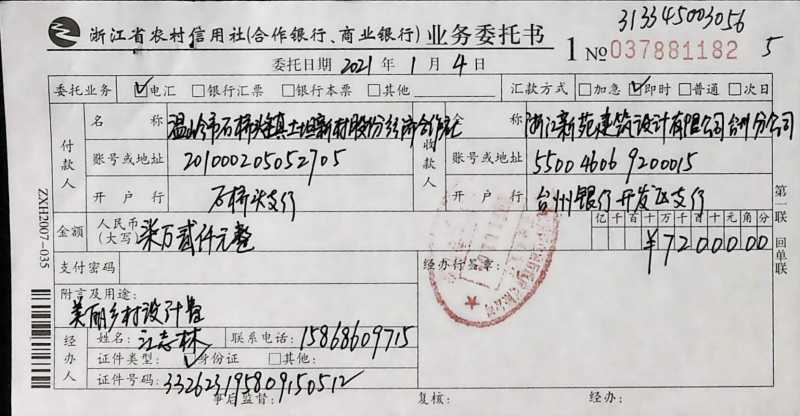 313345003056
浙江省农村信用社(合作银行、商业银行) 业务委托书 1 №037881182 5
委托日期 2021 年 1 月 4 日
委托业务 ☑电汇 □银行汇票 □银行本票 □其他 汇款方式 □加急 ☑即时 □普通 □次日
付款人 名称 温岭市石桥头镇土坦新村股份经济合作社 收款人 全称 浙江新苑建筑设计有限公司台州分公司
账号或地址 201000205052705 账号或地址 550046069200015
开户行 石桥头支行 开户行 台州银行开发区支行
金额 人民币(大写) 柒万贰仟元整 亿千百十万千百十元角分
¥7200000
支付密码 经办行签章:
附言及用途:
美丽乡村设计费
经办人 姓名: 江志林 联系电话: 15868609715
证件类型: ☑身份证 □其他:
证件号码: 332623195809150512
事后监督: 复核: 经办:
ZXH2007-035
第一联 回单联